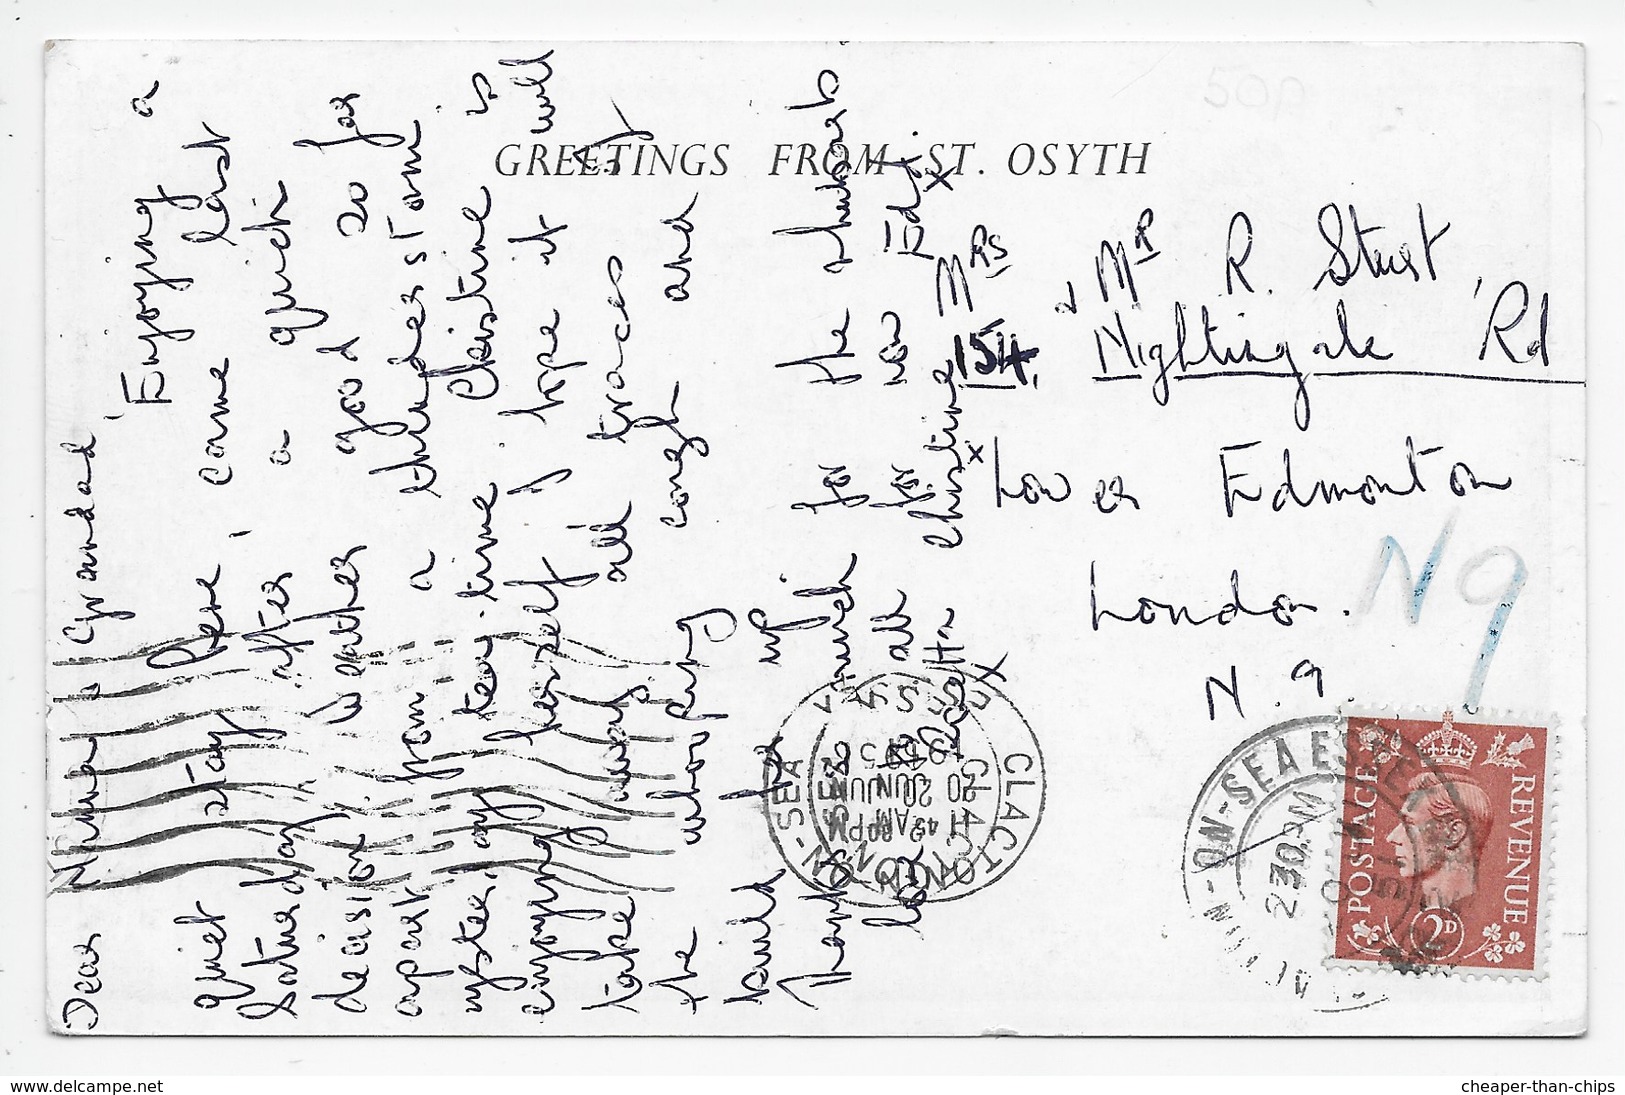 GREETINGS FROM ST. OSYTH
50p
Dear Nanna & Grandad
Enjoying a
quiet stay here, came last
Saturday after a quick
decision. Weather good so far
apart from a thunderstorm
yesterday tea-time. Christine is
enjoying herself, I hope it will
take away all traces of
the whooping cough and
build her up
Thanks very much for the rhubarb
love all for now Ed.
Rosetta Christine
x x x
Mrs & Mr R. Sturt,
154, Nightingale Rd
Lower Edmonton
London.
N. 9.
N9
CLACTON-ON-SEA
CLACTON-ON-SEA ESSEX
230PM
20 JUN
ESSEX
POSTAGE
REVENUE
2D
www.delcampe.net
cheaper-than-chips